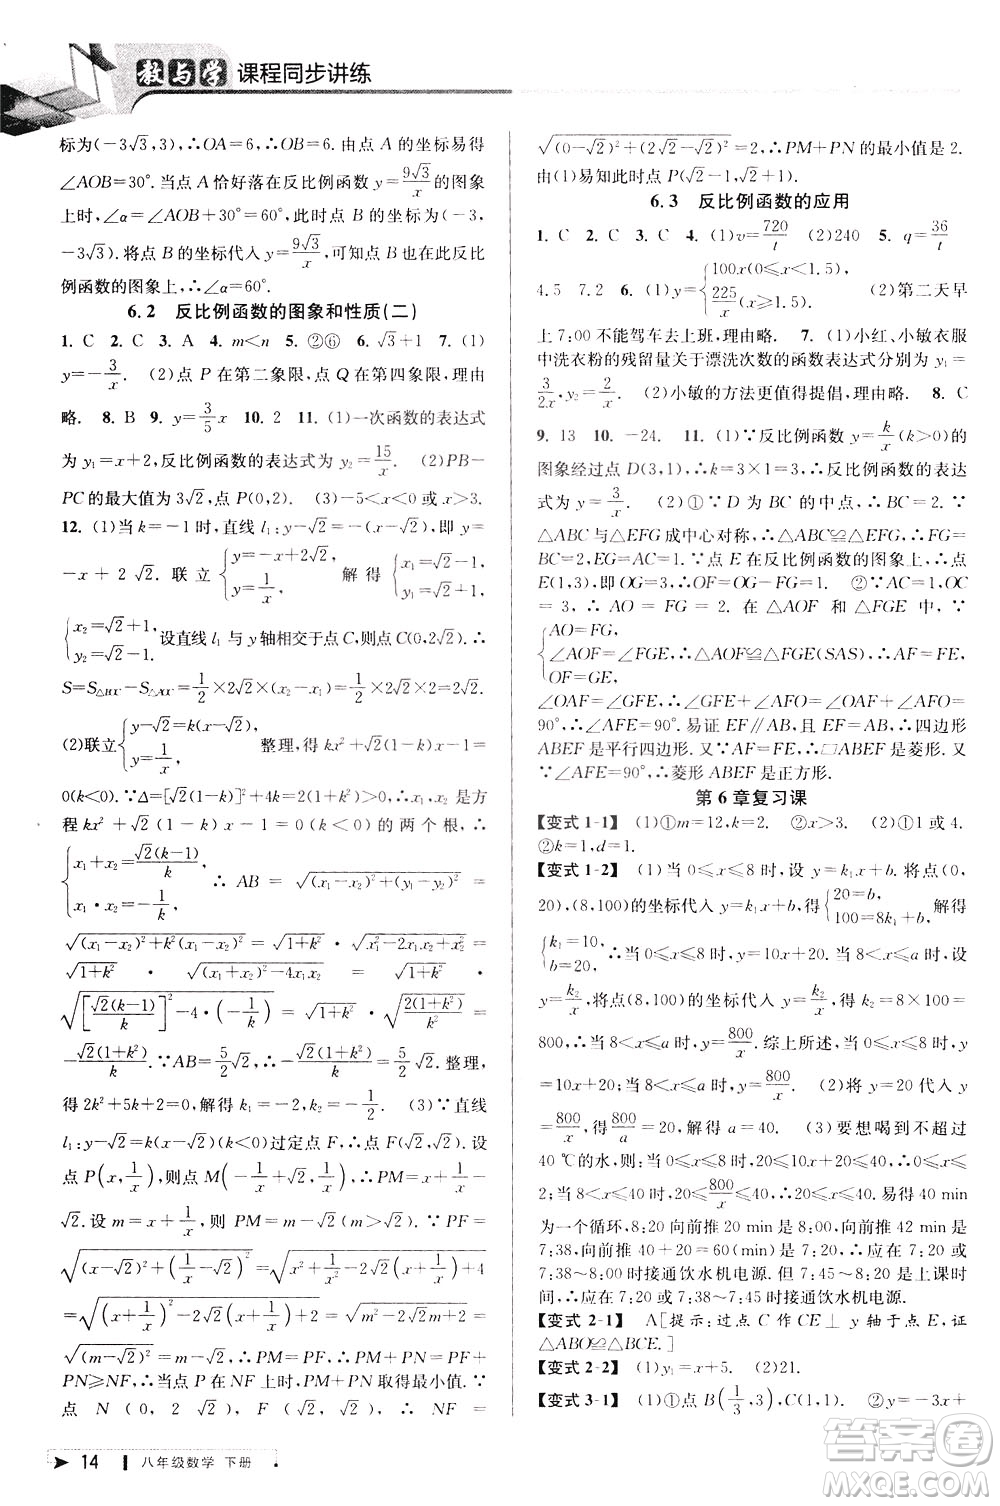 教与学 课程同步讲练
标为(-3√3,3),∴OA=6,∴OB=6.由点 A 的坐标易得
∠AOB=30°.当点 A 恰好落在反比例函数 y=9√3/x 的图象
上时,∠α=∠AOB+30°=60°,此时点 B 的坐标为(-3,
-3√3).将点 B 的坐标代入 y=9√3/x,易知点 B 也在反比
例函数的图象上,∴∠α=60°.
6.2 反比例函数的图象和性质(二)
1. C 2. C 3. A 4. m<n 5. ②⑥ 6. √3+1 7. (1)
y=-3/x. (2)点 P 在第二象限,点 Q 在第四象限,理由
略. 8. B 9. y=3/5 x 10. 2 11. (1)一次函数的表达式
为 y₁=x+2,反比例函数的表达式为 y₂=15/x. (2)PB-
PC的最大值为3√2,点 P(0,2). (3)-5<x<0 或 x>3.
12. (1)当 k=-1 时,直线 l₁:y-√2=-(x-√2),即 y=
-x+2√2.联立{y=-x+2√2, y=1/x, 解得{
x₂=√2+1, y₂=√2-1.设直线 l₁ 与 y 轴相交于点 C,则点 C(0,2√2).∴
(2)联立{y-√2=k(x-√2), y=1/x, 整理,得 kx²+√2(1-k)x-1=
0(k<0).∵Δ=[√2(1-k)]²+4k=2(1+k²)>0,x₁,x₂是方
程kx²+√2(1-k)x-1=0(k<0)的两个根,∴
{x₁+x₂=√2(k-1)/k, x₁·x₂=-1/k. ∴AB=√((x₁-x₂)²+(y₁-y₂)²)=
√((x₁-x₂)²+k²(x₁-x₂)²)=√(1+k²)·√(x₁²-2x₁x₂+x₂²)=
√(1+k²) · √((x₁+x₂)²-4x₁x₂) = √(1+k²) ·
-√2(1+k²)/k.∵AB=5/2√2,∴-√2(1+k²)/k=5√2/2.整理,
得 2k²+5k+2=0,解得 k₁=-2,k₂=-1/2. (3)∵直线
l₁:y-√2=k(x-√2)(k<0)过定点 F,∴点 F(√2,√2).设
点 P(x,1/x),则点 M(-1/x+√2,1/x),∴PM=x+1/x-
√2.设 m=x+1/x,则 PM=m-√2(m>√2).∵PF=
√((x-√2)²+(1/x-√2)²)=√(x²+1/x²-2√2(x+1/x)+4)=
√((x+1/x)²-2√2(x+1/x)+2)=√(m²-2√2m+2)=
√((m-√2)²)=m-√2,∴PM=PF,∴PM+PN=PF+
PN≥NF,∴当点 P 在 NF 上时,PM+PN 取得最小值.∵
点 N(0,√2),F(√2,√2),∴NF=
√((0-√2)²+(√2-√2)²)=2,∴PM+PN的最小值是2.
由(1)易知此时点 P(√2-1,√2+1).
6.3 反比例函数的应用
1. C 2. C 3. C 4. (1)v=720/t (2)240 5. q=36/t
4.5 7.2 6. (1)y={100x(0≤x<1.5), 225/x(x≥1.5). (2)第二天早
上 7:00 不能驾车去上班,理由略. 7. (1)小红、小敏衣服
中洗衣粉的残留量关于漂洗次数的函数表达式分别为 y₁=
3/2x,y₂=2/x. (2)小敏的方法更值得提倡,理由略. 8. C
9. 13 10. -24. 11. (1)∵反比例函数 y=k/x(k>0)的
图象经过点 D(3,1),∴k=3×1=3,∴反比例函数的表达
式为 y=3/x. (2)①∵D 为 BC 的中点,∴BC=2.∵
△ABC与△EFG成中心对称,∴△ABC≌△EFG,∴GF=
BC=2,EG=AC=1.∵点 E 在反比例函数的图象上,∴点
E(1,3),即 OG=3,∴OF=OG-GF=1. ②∵AC=1,OC
=3,∴AO=FG=2.在△AOF和△FGE中,∵
{AO=FG, ∠AOF=∠FGE, OF=GE, ∴△AOF≌△FGE(SAS),∴AF=FE,
∠OAF=∠GFE,∴∠GFE+∠AFO=∠OAF+∠AFO=
90°,∴∠AFE=90°.易证 EF∥AB,且 EF=AB,∴四边形
ABEF是平行四边形.又∵AF=EF,∴□ABEF为菱形.又
∵∠AFE=90°,∴菱形ABEF是正方形.
第6章复习课
【变式 1-1】 (1)①m=12,k=2. ②x>3. (2)①1 或 4.
②k=1,d=1.
【变式 1-2】 (1)当 0≤x≤8 时,设 y=k₁x+b,将点(0,
20),(8,100)的坐标代入 y=k₁x+b,得{20=b, 100=8k₁+b, 解得
{k₁=10, b=20.∴当 0≤x≤8 时,y=10x+20;当 8<x≤a 时,设
y=k₂/x,将点(8,100)的坐标代入 y=k₂/x,得 k₂=8×100=
800,∴当 8<x≤a 时,y=800/x.综上所述,当 0≤x≤8 时,y
=10x+20;当 8<x≤a 时,y=800/x. (2)将 y=20 代入 y
=800/x,得 20=800/a,解得 a=40. (3)要想喝到不超过
40 ℃的水,则:∵0≤x≤8,10x+20≤40,∴0<x≤2.
∵8<x≤40,800/x≤40,∴20≤x≤40.易得 40 min
为一个循环,8:20 向前推 20 min 是 8:00,向前推 42 min 是
7:38,向前推 35 min 是 7:45.40-20=20(min),∴应在
7:38~8:00时接通饮水机电源.但 7:45~8:20 是上课时
间,∴应在 8:00 或 7:38~7:45 时接通饮水机电源.
【变式 2-1】 A[提示:过点 C 作 CE⊥y 轴于点 E,证
△ABO≌△BCE.]
【变式 2-2】 (1)y₁=x+5. (2)21.
【变式 3-1】 (1)①点 B(1/3,3),点 C(1,1). ②点
14 八年级数学 下册
答案圈
MXQE.COM